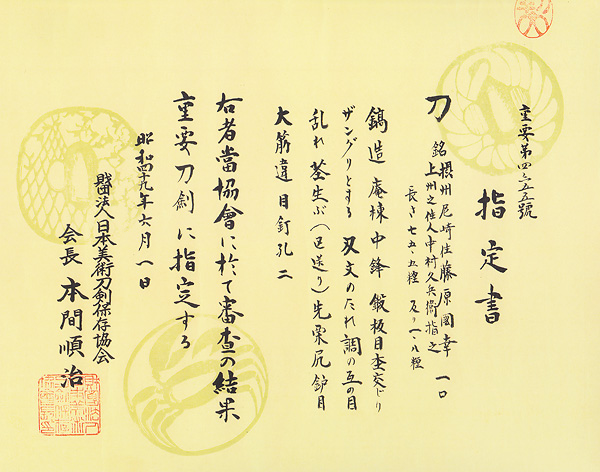 重要第四六五五號
指定書
刀 銘 摂州尼崎住藤原國幸 一口
上州之住人中村久兵衛指之
長さ七五、五糎 反り一、八糎
鎬造 庵棟 中鋒 鍛板目杢交じり
ザングリとする 刃文のたれ調の互の目
乱れ 茎生ぶ（区送り）先栗尻 鈩目
大筋違 目釘孔二
右者當協會に於て審査の結果
重要刀剣に指定する
昭和四十九年六月一日
財団法人日本美術刀剣保存協会
会長 本間順治